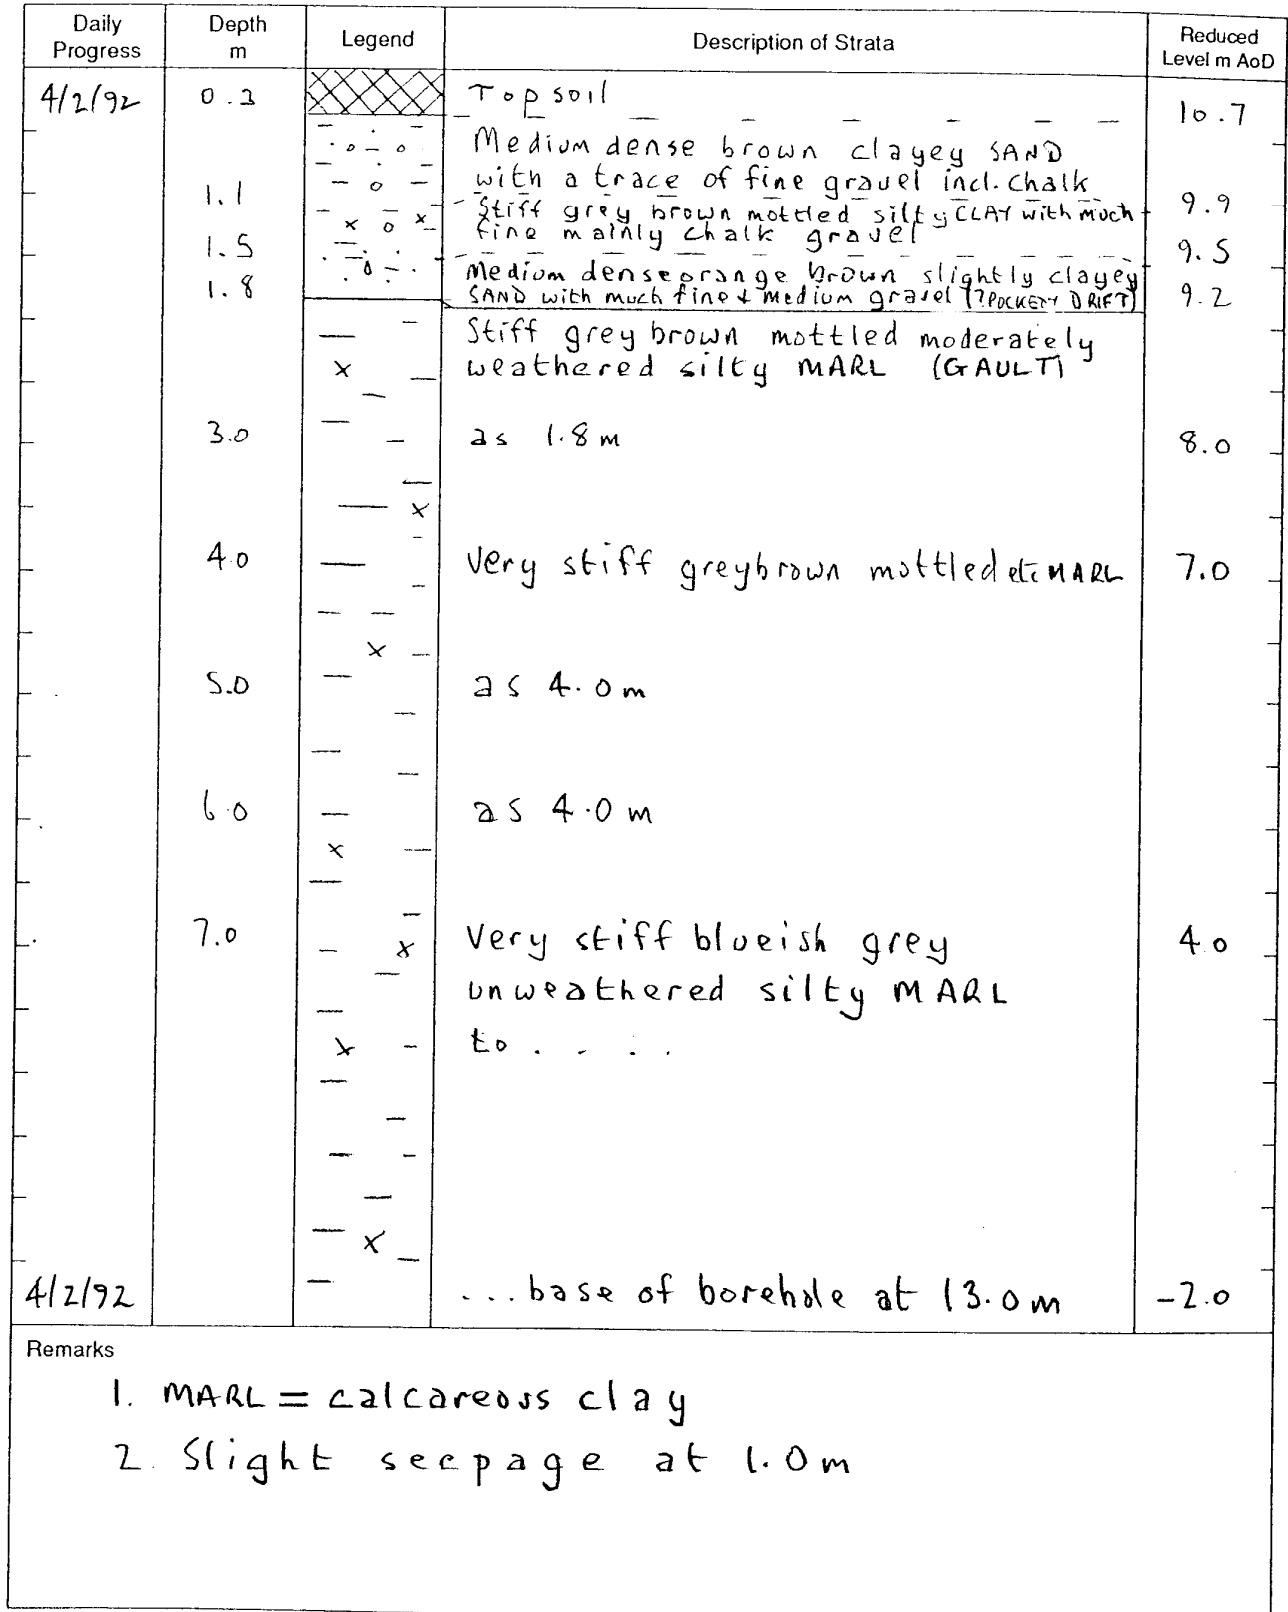 Daily Progress Depth m Legend Description of Strata Reduced Level m AoD
4/2/92 0.3 Topsoil 10.7
Medium dense brown clayey SAND
with a trace of fine gravel incl. chalk
1.1 9.9
Stiff grey brown mottled silty CLAY with much
fine mainly chalk gravel
1.5 9.5
Medium dense orange brown slightly clayey
1.8 SAND with much fine & medium gravel (?POCKETY DRIFT) 9.2
Stiff grey brown mottled moderately
weathered silty MARL (GAULT)
3.0 as 1.8 m 8.0
4.0 Very stiff greybrown mottled etc MARL 7.0
5.0 as 4.0 m
6.0 as 4.0 m
7.0 Very stiff blueish grey 4.0
unweathered silty MARL
to . . . .
4/2/92 ... base of borehole at 13.0 m -2.0
Remarks
1. MARL = calcareoss clay
2. Slight seepage at 1.0 m